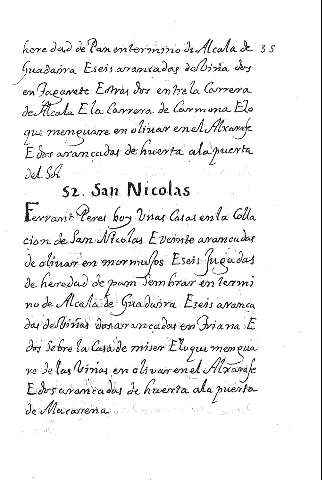 heredad de Pan en termino de Alcala de 35
Guadaira E seis arancadas de Viña dos
en Taganete E otras dos entre la Carrera
de Alcala E la Carrera de Carmona E lo
que menguare en olivar en el Alxarafe
E dos arancadas de huerta a la puerta
del Sol
52. San Nicolas
Ferrant Peres boy Unas Casas en la Colla
cion de San Nicolas E veinte arancadas
de olivar en mormulos E seis Jugadas
de heredad de pam Sembrar en termi
no de Alcala de Guadaira E seis aranca
das de Viñas dos arancadas en Triana E
dos Sobre la Casa de miser E lo que mengua
re de las Viñas en olivar en el Alxarafe
E dos arancadas de huerta a la puerta
de Macarena